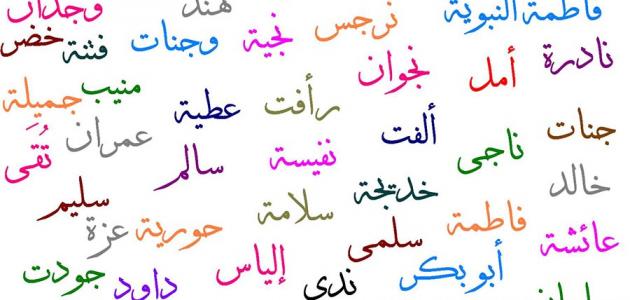 فاطمة النبوية
هند
وجدان
نرجس
نجية
وجنات
فتنة
خضر
نادرة
أمل
نجوان
منيب
جميلة
رأفت
عطية
جنات
ألفت
عمران
ناجى
نفيسة
سالم
تُقَى
خالد
خديجة
سليم
سلامة
فاطمة
حورية
عزة
عائشة
سلمى
أبو بكر
إلياس
جودت
داود
ندى